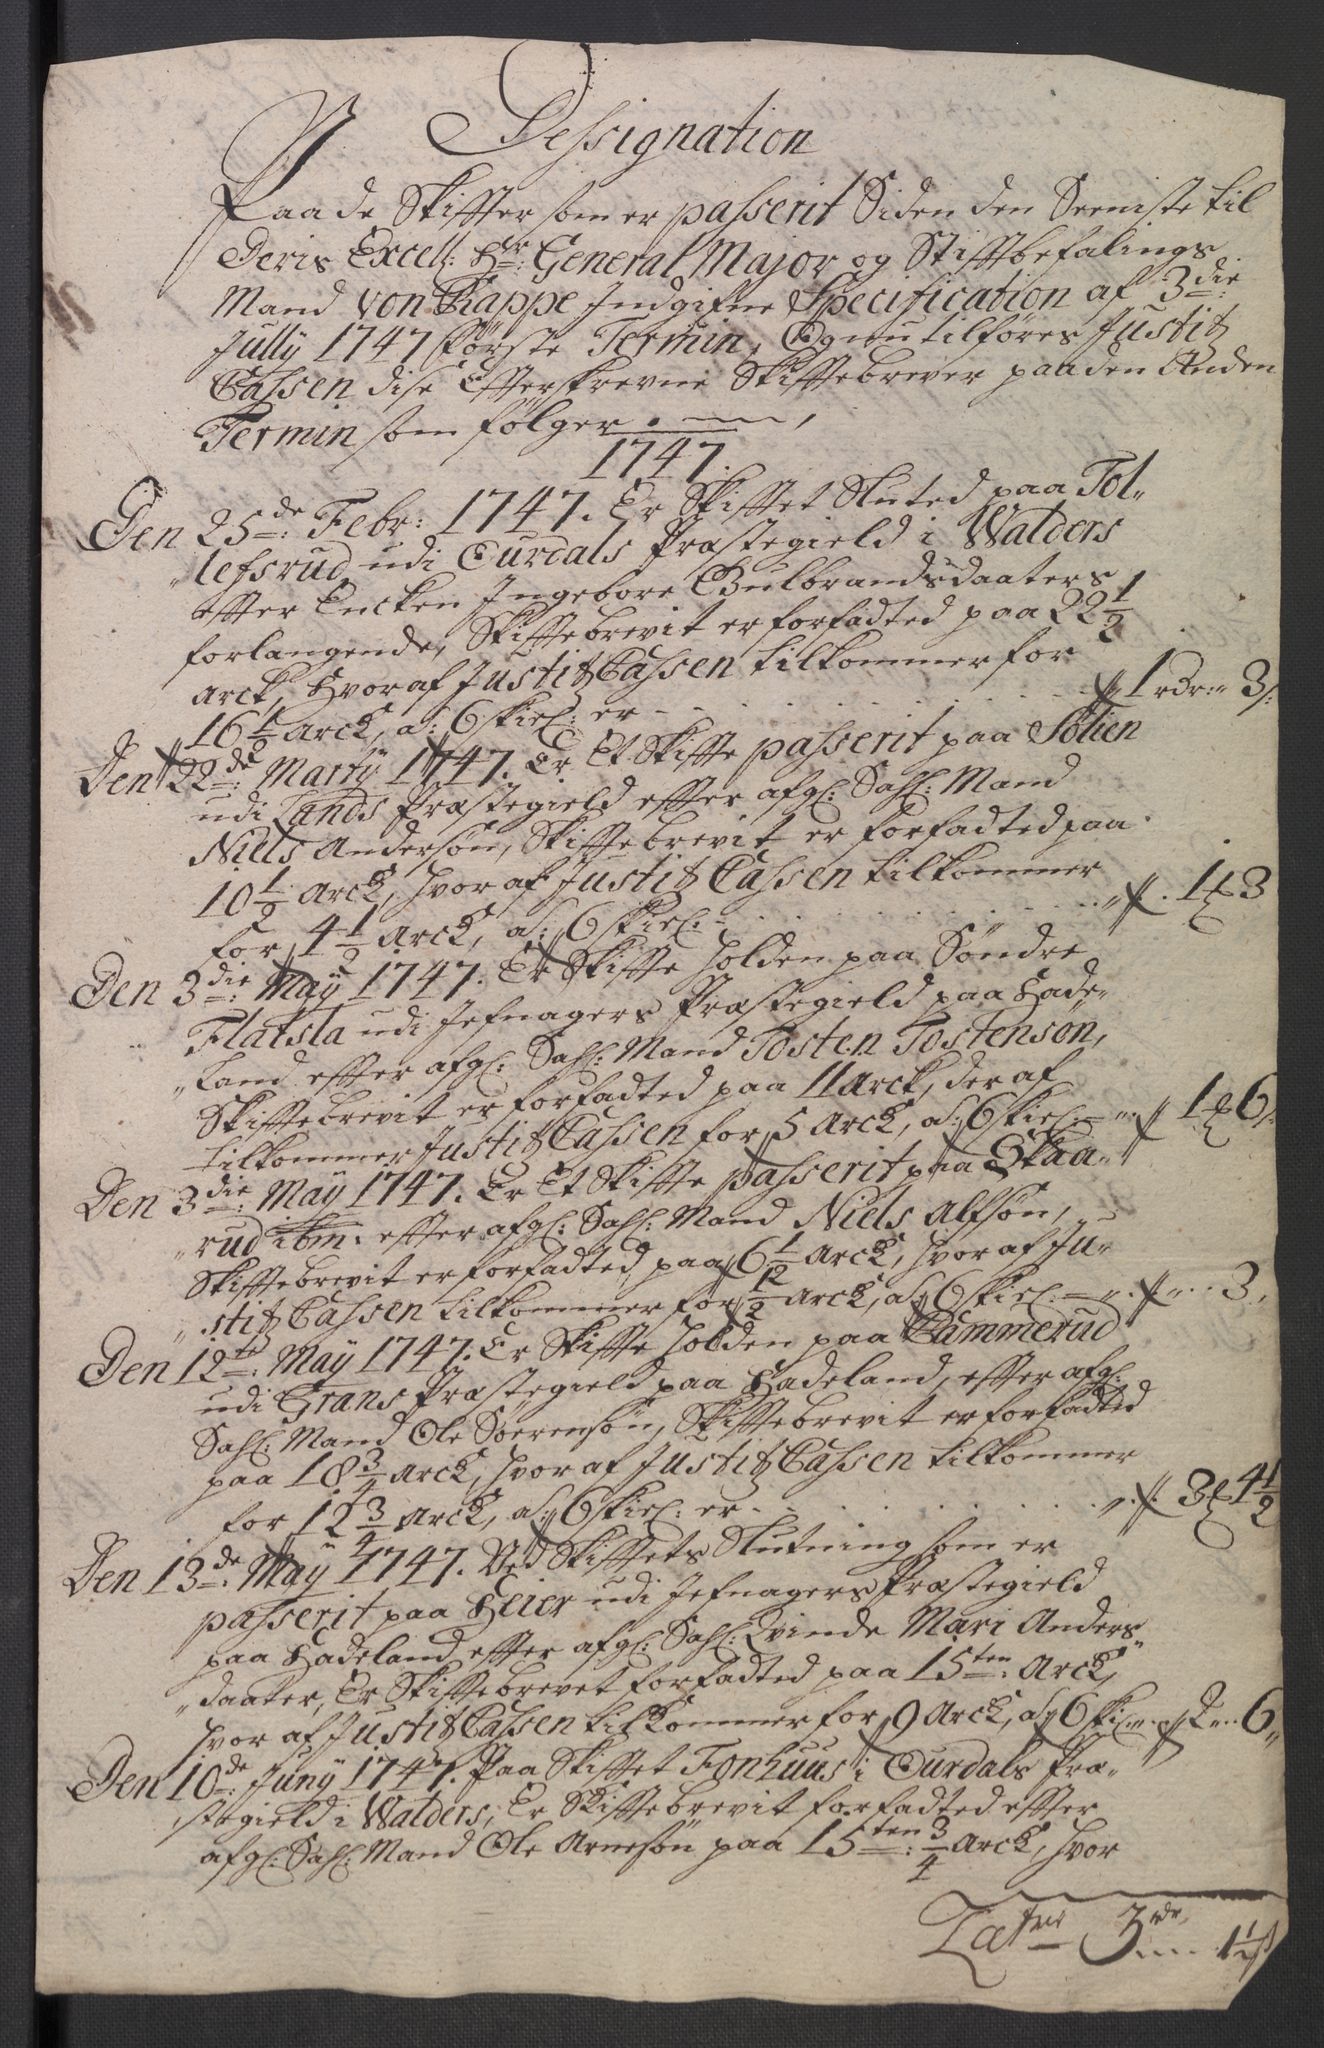 Dessignation
Paa de Skiffter som er passerit Siden den Seeniste til
Deris Excell: Hr: General Major og Stiftbefalings
Mand von Rappe Indgifne Specification af 3die:
Jully 1747 förste Termin, Og nu tilföres Justitz
Cassen dise Effterskrevne Skifftebrever paa den Anden
Termin som fölger
1747.
Den 25de: Febr: 1747. Er Skifftet Sluted paa Tol-
lefsrud, udi Ourdals Præstegield i Walders
effter Encken Ingebore Gulbrandsdaaters
forlangende, Skifftebrevit er forfadted paa 22 1/2
arck, Hvoraf Justitz Cassen tilkommer for
16 1/2 arck, a: 6 skiel: er . . . . . . 1 rdr: 3 s:
Den 22de: Marty 1747. Er Et Skiffte passerit paa Sölien
udi Lands Præstegield effter afg: Sahl: Mand
Niels Andersön, Skifftebrevit er forfadted paa
10 1/2 Arck, hvor af Justitz Cassen tilkommer
for 4 1/2 Arck, a: 6 skiel: . . . . . . 1 # 3
Den 3die: May 1747. Er Skiffte holden paa Söndre
Flatsla udi Jefnagers Præstegield paa Hade-
Land effter afg: Sahl: Mand Tosten Tostensön,
Skifftebrevit er forfadted paa 11 Arck, der af
tilkommer Justitz Cassen for 5 Arck, a: 6 skiel: 1 # 6
Den 3die: May 1747. Er Et Skiffte passerit paa Skaa-
rud ibm: effter afg: Sahl: Mand Niels Alfsön,
Skifftebrevit er forfadted paa 6 1/2 Arck, hvor af Ju-
stitz Cassen tilkommer for 1/2 Arck, a: 6 skiel: 3
Den 12te: May 1747. Er Skiffte holden paa Cammerud
udi Grans Præstegield paa Hadeland, effter afg:
Sahl: Mand Ole Soerensön, Skifftebrevit er forfadted
paa 18 3/4 Arck, hvor af Justitz Cassen tilkommer
for 12 3/4 Arck, a: 6 skiel: er . . . . . 3 # 4 1/2
Den 13de: May 1747. Ved Skifftets Slutning som er
passerit paa Heier udi Jefnagers Præstegield
paa Hadeland effter afg: Sahl: Qvinde Mari Anders
daater, Er Skifftebrevet forfadted paa 15ten: Arck,
hvor af Justitz Cassen tilkommer for 9 Arck, a: 6 skiel: 2 6
Den 10de: Juny 1747. Paa Skifftet Fonhuus i Ourdals Præ-
stegield i Walders, Er Skifftebrevit forfadted effter
afg: Sahl: Mand Ole Arnesön paa 15ten: 3/4 Arck, hvor
Latus 3 rdr 1 1/2 s